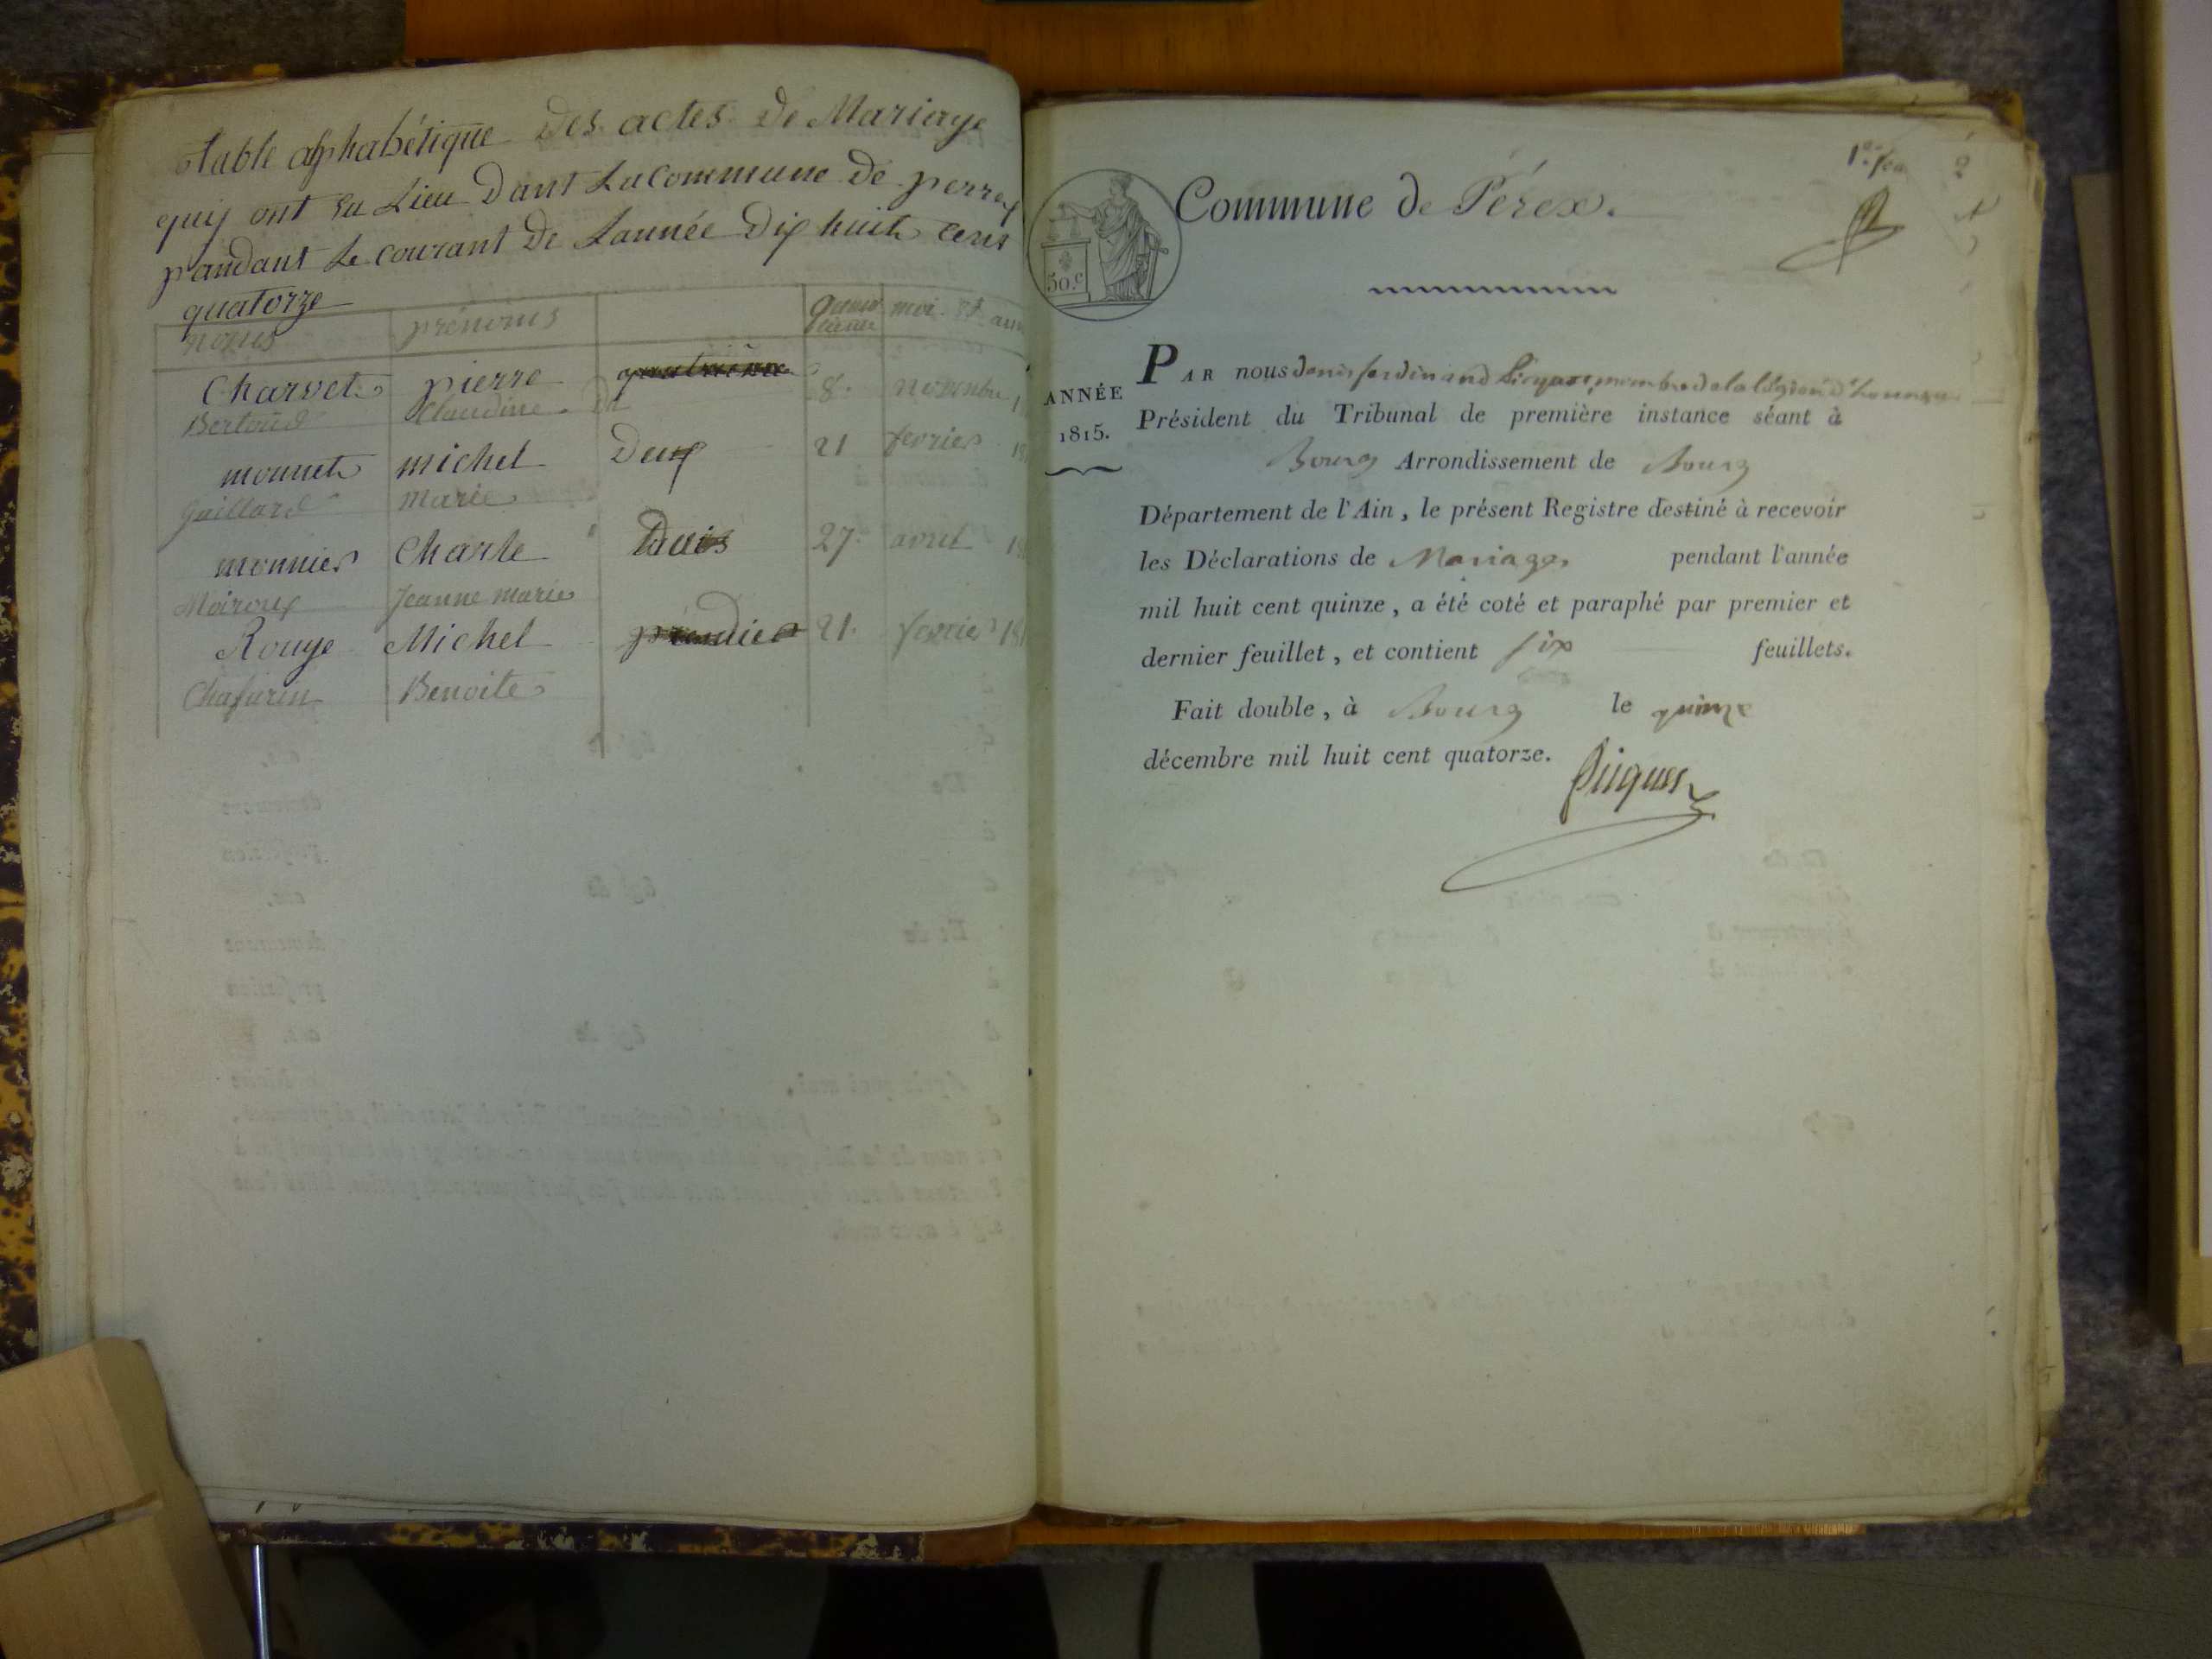 Table alphabétique des actes de Mariage
quij ont eu Lieu Dant La Commune de perrex
pandant Le courant De Lannée Dix huit cens
quatorze
noms prénoms moi et ann
Charvet pierre quatrième 8. novembre
Bertoud Claudine
monnet michel Deux 21 fevrier
Guillard Marie
monnier Charle 27. avril
Moiroux Jeanne marie
Rouge Michel premier 21. fevrier
Chafurin Benoite
1er feu 2
Commune de Pérex.
50.c
ANNÉE
1815.
PAR nous denis ferdinand Picquet, membre de la légion d'honneur
Président du Tribunal de première instance séant à
Bourg Arrondissement de Bourg
Département de l'Ain, le présent Registre destiné à recevoir
les Déclarations de Mariages pendant l'année
mil huit cent quinze, a été coté et paraphé par premier et
dernier feuillet, et contient six feuillets.
Fait double, à Bourg le quinze
décembre mil huit cent quatorze.
Picquet